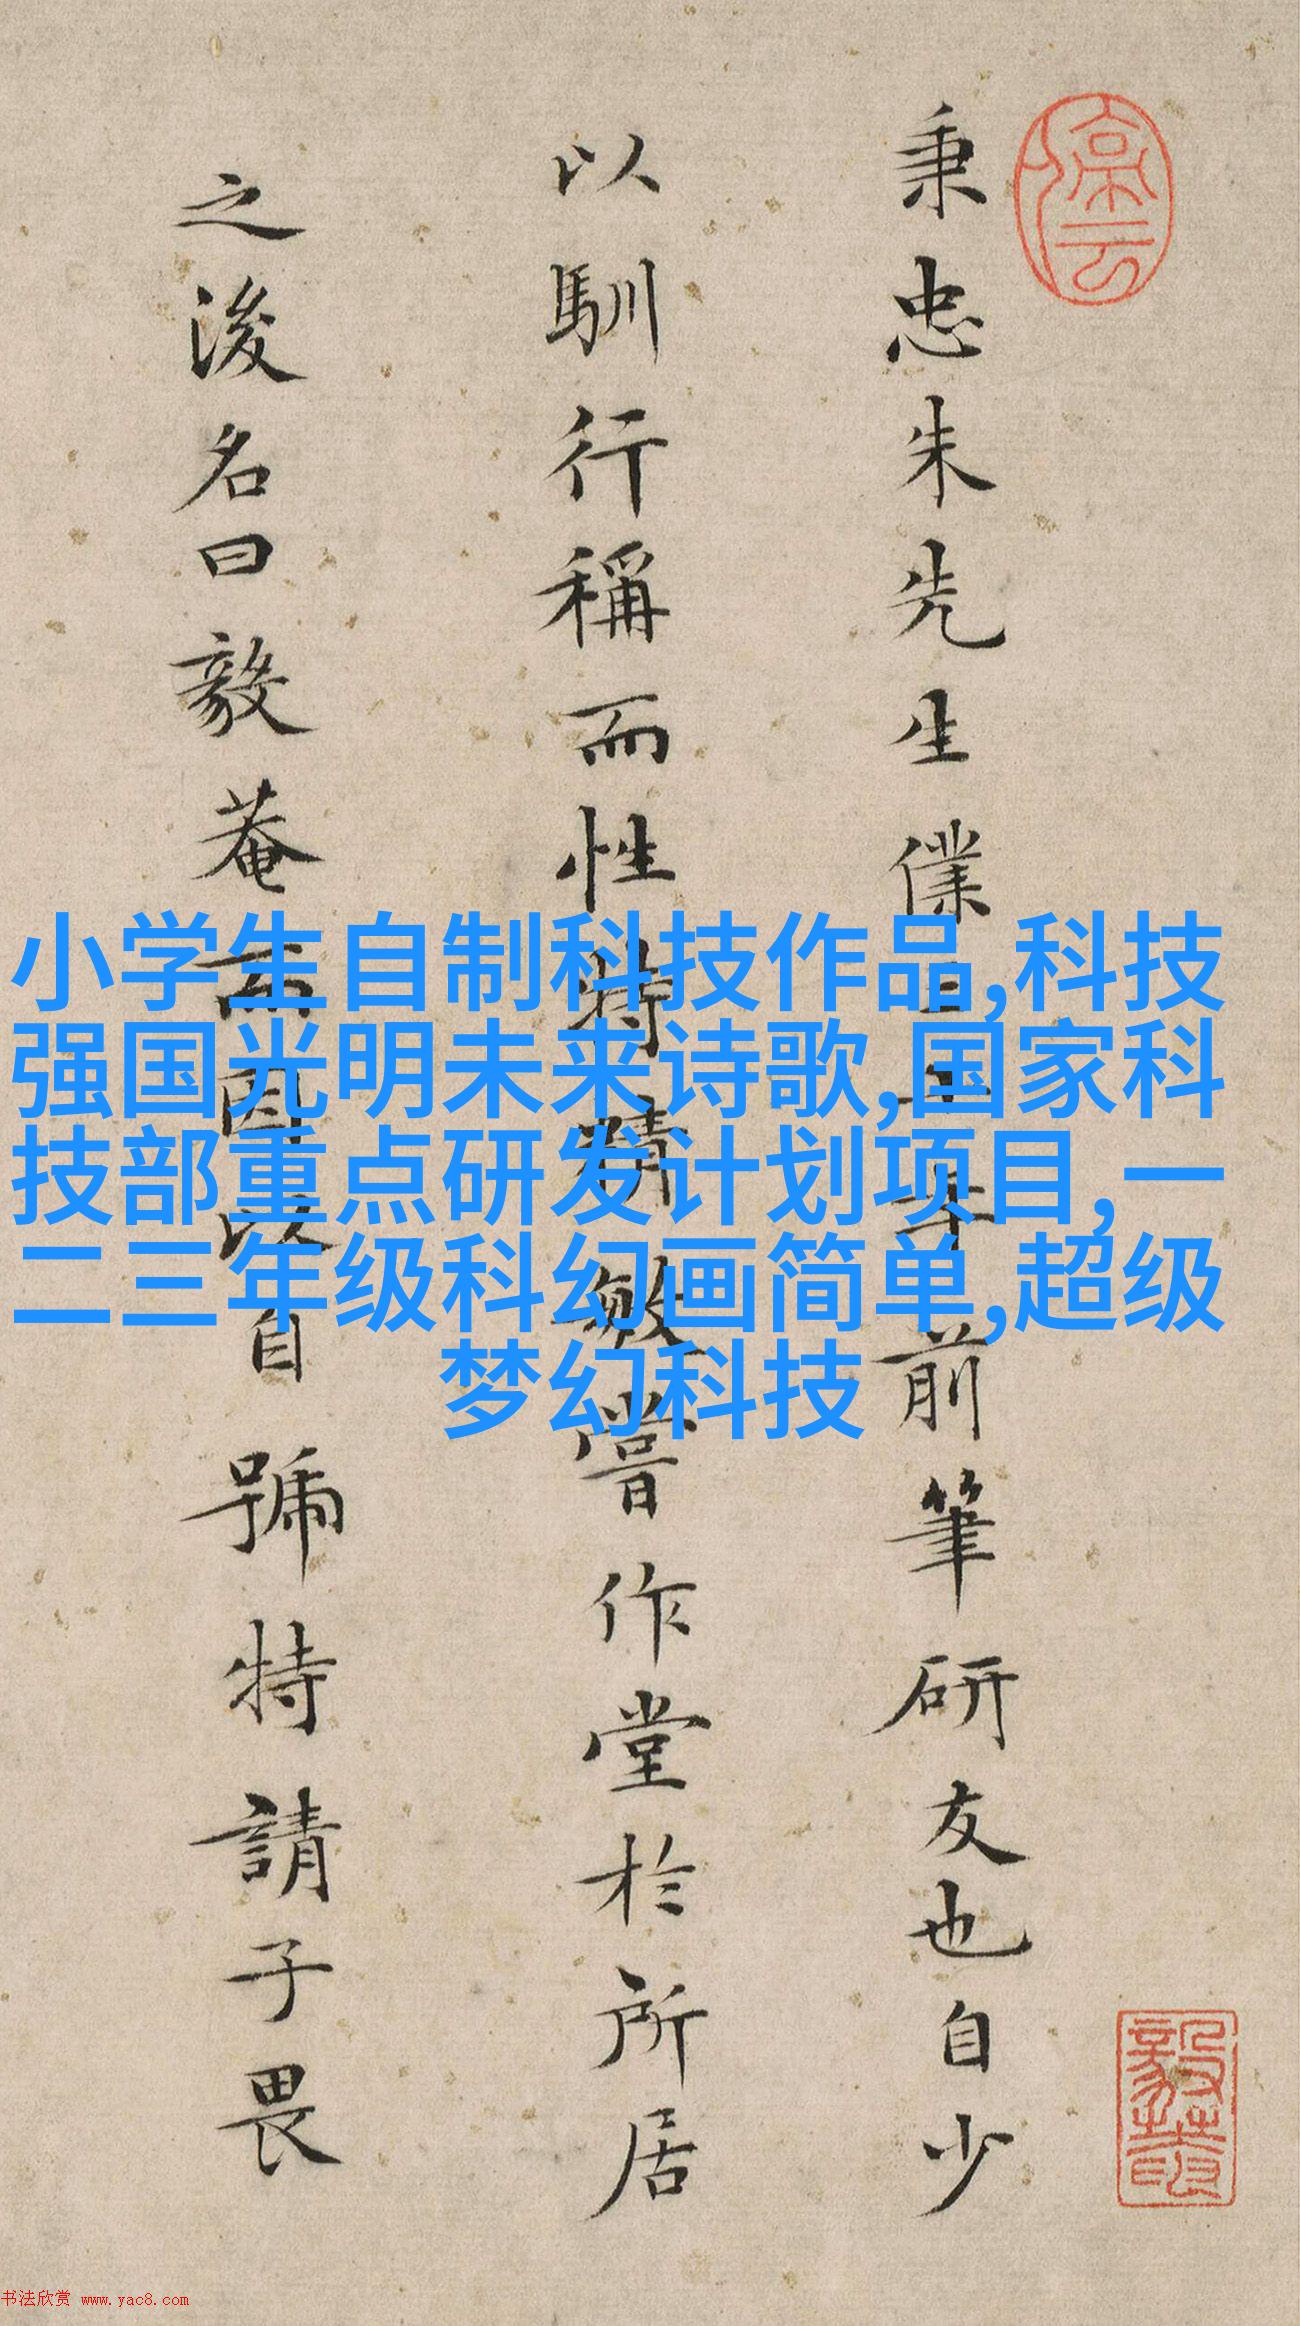 停云
秉忠朱先生僕三十年前筆研友也自少
以馴行稱而性特精敏嘗作堂於所居
之後名曰毅菴而因以自號特請子畏
小学生自制科技作品,科技
强国光明未来诗歌,国家科
技部重点研发计划项目,一
二三年级科幻画简单,超级
梦幻科技
书法欣赏 www.yac8.com